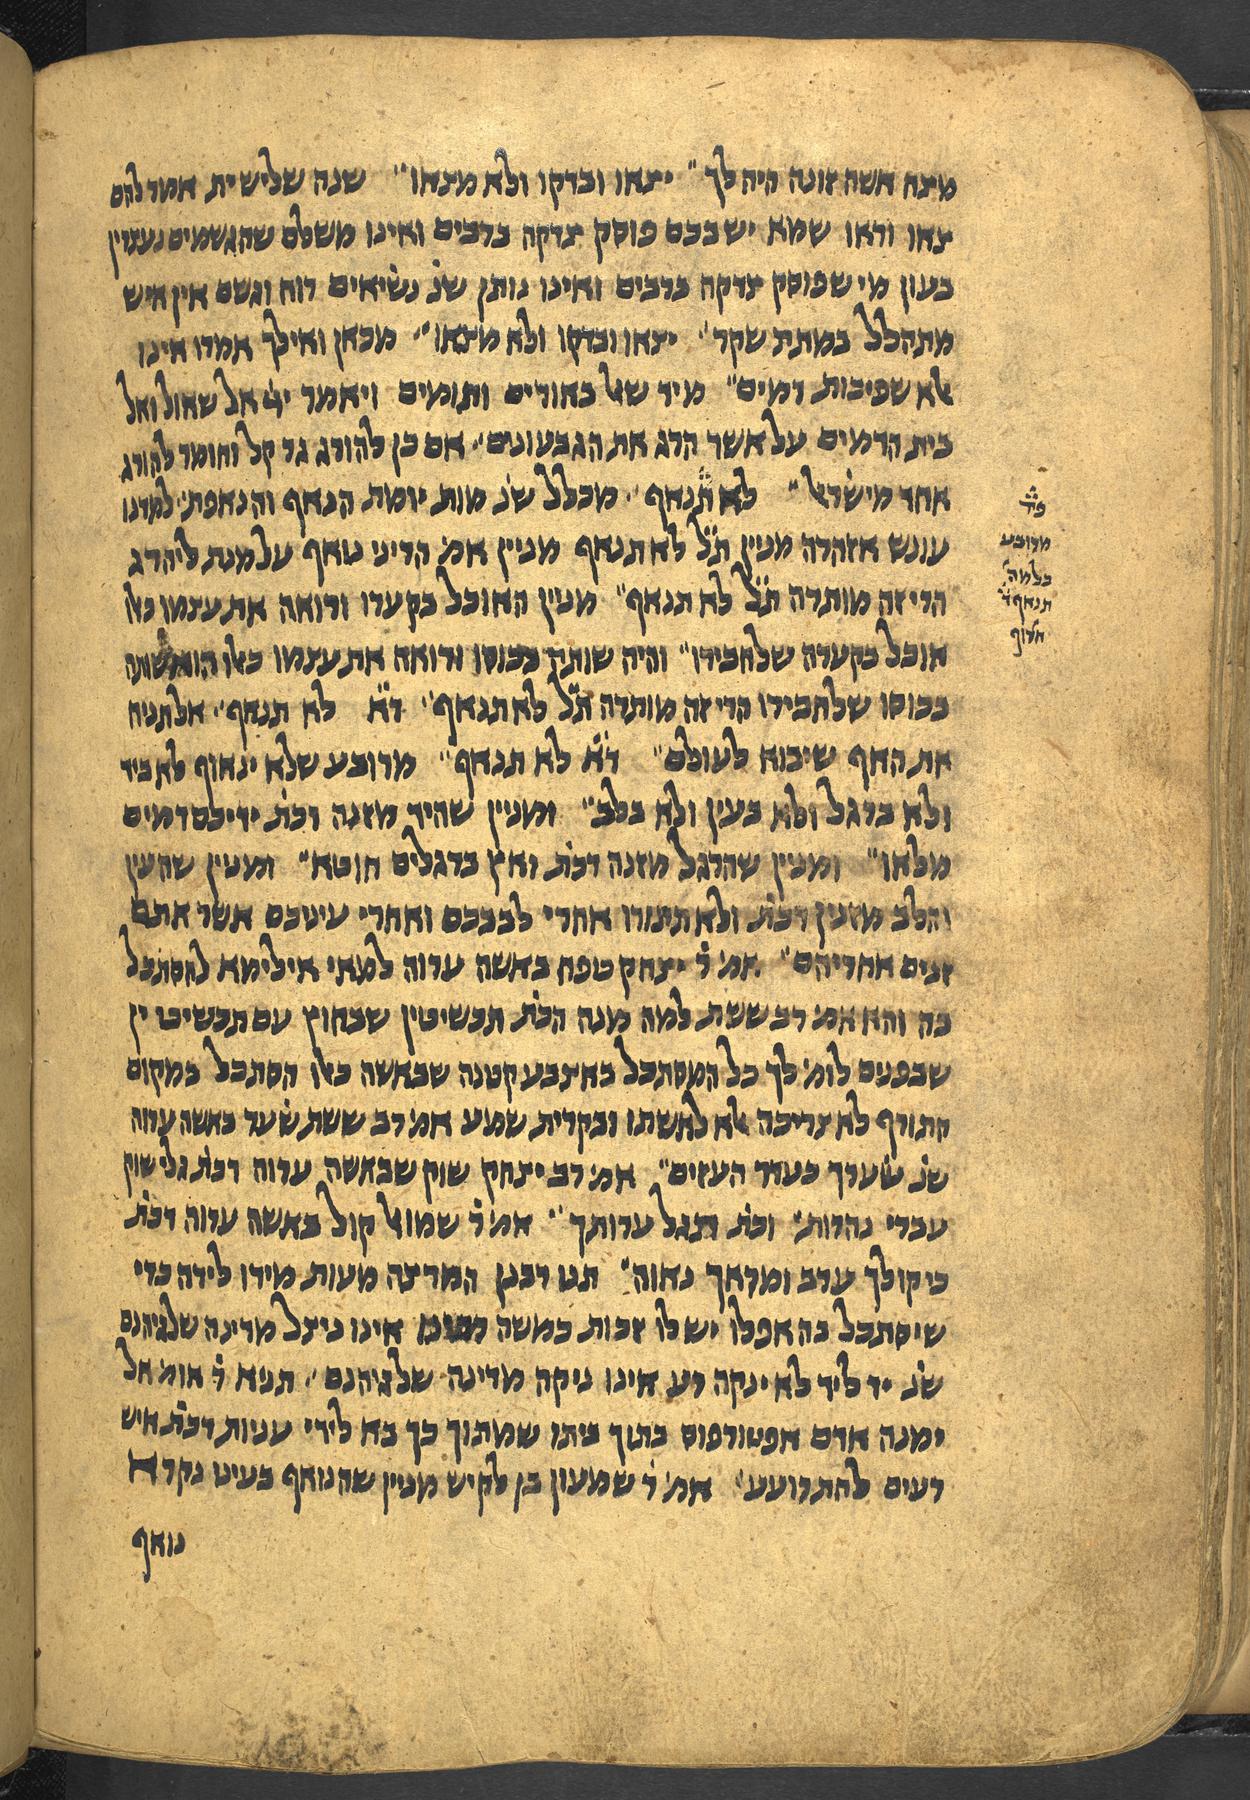 מצח אשה זונה היה לך״ יצאו ובדקו ולא מצאו״ שנה שלישית אמר להם
צאו וראו שמא יש בכם פוסק צדקה ברבים ואינו משלם שהגשמים נעצרין
בעון מי שפוסק צדקה ברבים ואינו נותן שנ׳ נשיאים רוח וגשם אין איש
מתהלל במתת שקר׳ יצאו ובדקו ולא מצאו״ מכאן ואילך אמרו אינו
אלא שפיכות דמים״ מיד שאל באורים ותומים ויאמר ייי אל שאול ואל
בית הדמים על אשר הרג את הגבעונים׳ אם כן להורג גר קל וחומר להורג
אחד מישראל״ לא תנאף׳ מכלל שנ׳ מות יומת הנאף והנאפת׳ למדנו
עונש אזהרה מניין ת״ל לא תנאף מניין אמ׳ הריני נואף על מנת ליהרג
הרי זה מותרה ת״ל לא תנאף״ מנין האוכל בקערו ורואה את עצמו כאו
אוכל בקערה שלחבירו״ והיה שותה בכוסו ורואה את עצמו כאו הוא שותה
בכוסו שלחבירו הרי זה מותרה ת״ל לא תנאף׳ ד״א לא תנאף׳ אל תניח
את האף שיבוא לעולם״ ד״א לא תנאף״ מרובע שלא ינאוף לא ביד
ולא ברגל ולא בעין ולא בלב״ ומניין שהיד מזנה דכת׳ ידיכם דמים
מלאו״ ומנין שהרגל מזנה דכת׳ ואץ ברגלים חוטא״ ומנין שהעין
והלב מזנין דכת׳ ולא תתורו אחרי לבבכם ואחרי עיניכם אשר אתם
זונים אחריהם״ אמ׳ ר׳ יצחק טפח באשה ערוה למאי אילימא להסתכל
בה והא אמ׳ רב ששת למה מנה הכת׳ תכשיטין שבחוץ עם תכשיטין
שבפנים לומ׳ לך כל המסתכל באצבע קטנה שבאשה כאו הסתכל במקום
התורף לא צריכה אלא לאשתו ובקרית שמע אמ׳ רב ששת שער באשה ערוה
שנ׳ שערך כעדר העזים״ אמ׳ רב יצחק שוק שבאשה ערוה דכת׳ גלי שוק
עברי נהרות׳ וכת׳ ותגל ערותך״ אמ׳ ר׳ שמואל קול באשה ערוה דכת׳
כי קולך ערב ומראך נאוה״ תנו רבנן המרצה מעות מידו לידה כדי
שיסתכל בה אפלו יש לו זכות כמשה אינו ניצל מדינה שלגיהנם
שנ׳ יד ליד לא ינקה רע אינו ניקה מדינה שלגיהנם׳ תניא ר׳ אומ׳ אל
ימנה אדם אפטורפוס בתוך ביתו שמתוך כך בא לידי עניות דכת׳ איש
רעים להתרועע׳ אמ׳ ר׳ שמעון בן לקיש מניין שהנואף בעינו נקרא
נואף
פיר׳
מרובע
בלמה
תנאף ד׳
אלוף